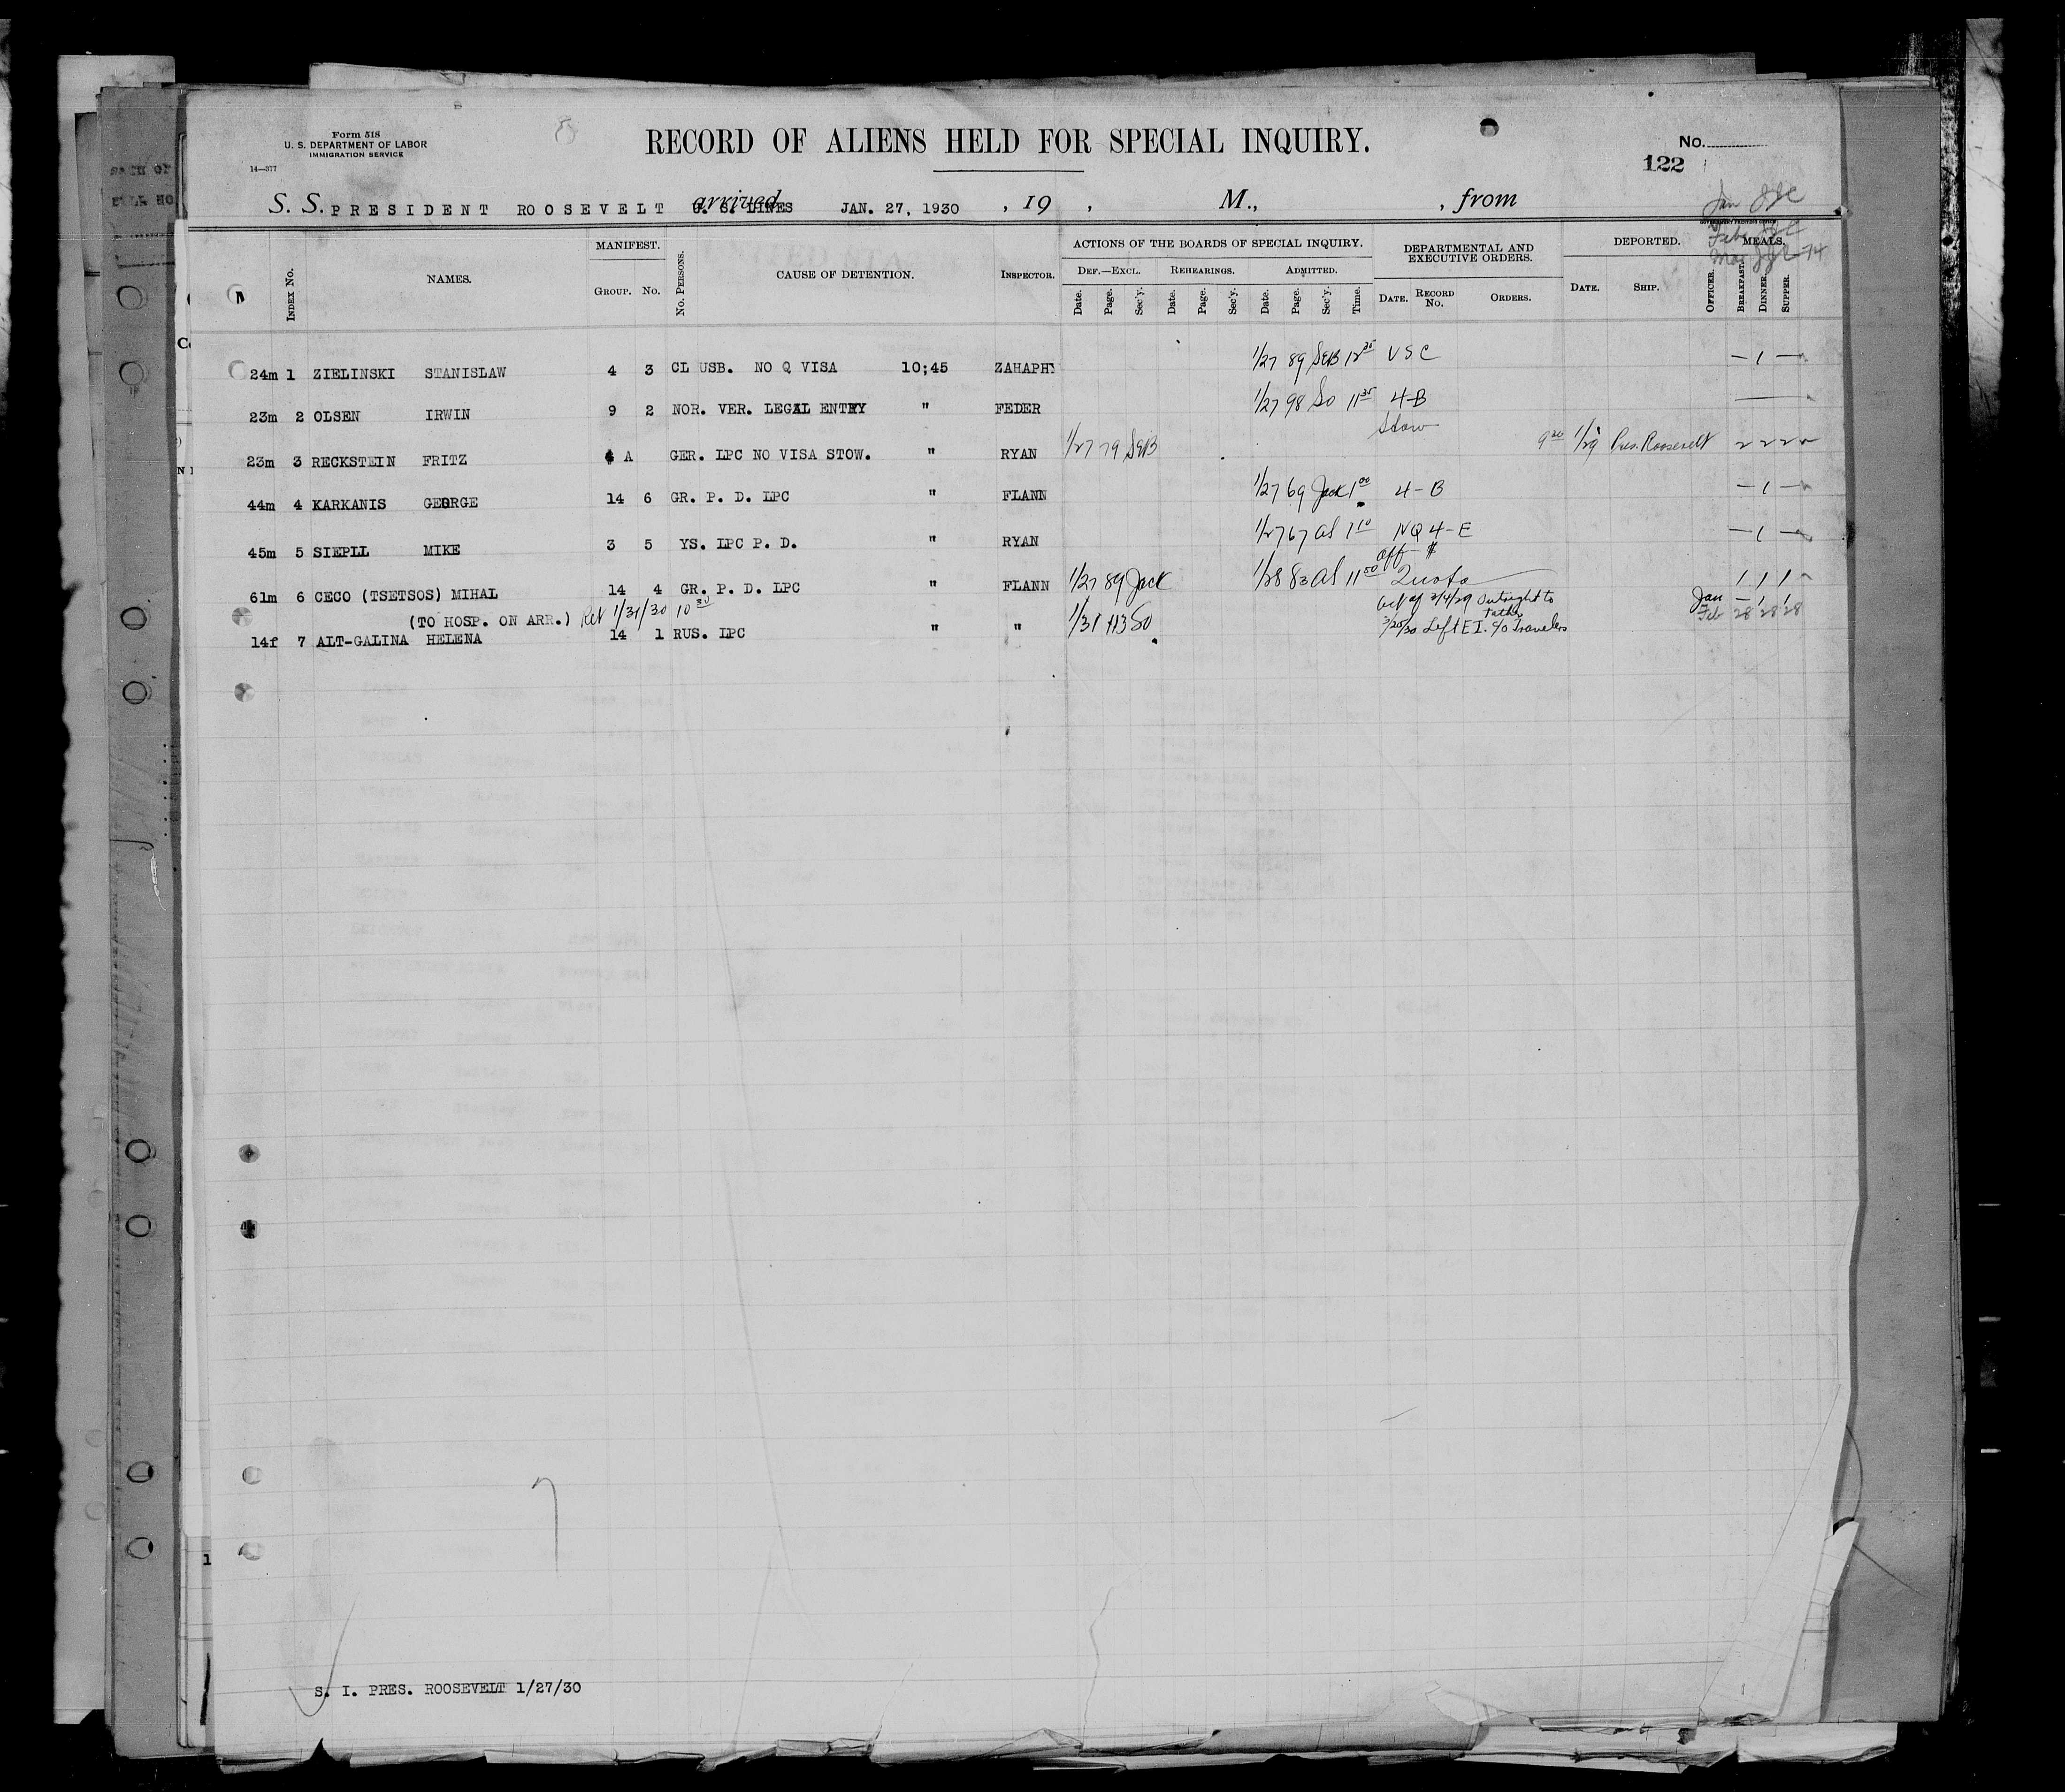 Form 518
U. S. DEPARTMENT OF LABOR
IMMIGRATION SERVICE
14—377
RECORD OF ALIENS HELD FOR SPECIAL INQUIRY.
No.
122
S. S. PRESIDENT ROOSEVELT arrived U. S. LINES JAN. 27, 1930 , 19 , M., , from
Jan
Feb
Mar
INDEX No. NAMES. MANIFEST. GROUP. No. No. PERSONS. CAUSE OF DETENTION. INSPECTOR. ACTIONS OF THE BOARDS OF SPECIAL INQUIRY. DEF.—EXCL. REHEARINGS. ADMITTED. DEPARTMENTAL AND EXECUTIVE ORDERS. DEPORTED. MEALS.
Date. Page. Sec'y. Date. Page. Sec'y. Date. Page. Sec'y. Time. DATE. RECORD No. ORDERS. DATE. SHIP. OFFICER. BREAKFAST. DINNER. SUPPER.
24m 1 ZIELINSKI STANISLAW 4 3 CL USB. NO Q VISA 10;45 ZAHAPHY 1/27 89 SEB 12 35 USC — 1 —
23m 2 OLSEN IRWIN 9 2 NOR. VER. LEGAL ENTRY " FEDER 1/27 98 So 11 35 4-B
Stow
23m 3 RECKSTEIN FRITZ A GER. LPC NO VISA STOW. " RYAN 1/27 79 SEB 9 20 1/29 Pres. Roosevelt 2 2 2
44m 4 KARKANIS GEORGE 14 6 GR. P. D. LPC " FLANN 1/27 69 Jack 1 00 4-B — 1 —
45m 5 SIEPLL MIKE 3 5 YS. LPC P. D. " RYAN 1/27 67 al 1 10 NQ 4-E — 1 —
61m 6 CECO (TSETSOS) MIHAL 14 4 GR. P. D. LPC " FLANN 1/27 89 Jack 1/28 83 al 11 50 Quota 1 1 1
(TO HOSP. ON ARR.) Ret 1/31/30 10 30
14f 7 ALT-GALINA HELENA 14 1 RUS. LPC " " 1/31 113 So Act of 3/4/29 Outright to father Jan — 1 1
3/20/30 Left E I. c/o Travelers Feb 28 28 28
S. I. PRES. ROOSEVELT 1/27/30